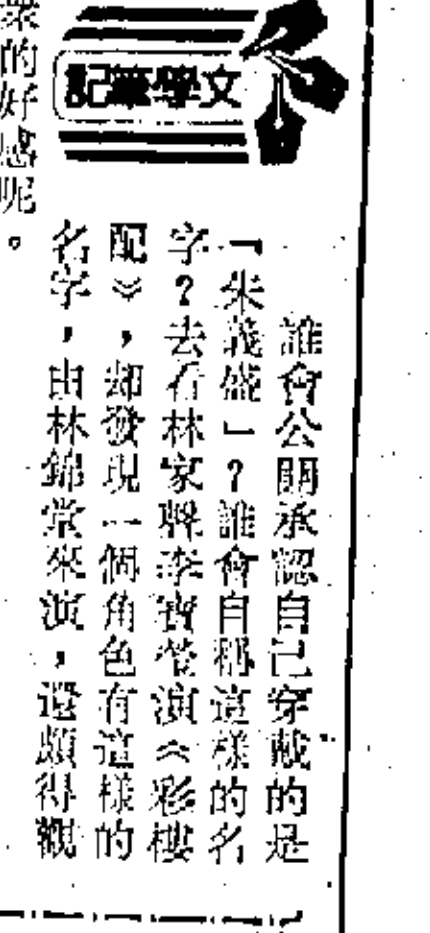 文學筆記
誰會公開承認自己穿戴的是
「朱義盛」？誰會自稱這樣的名
字？去看林家聲李寶瑩演《彩樓
配》，却發現一個角色有這樣的
名字，由林錦堂來演，還頗得觀
衆的好感呢。